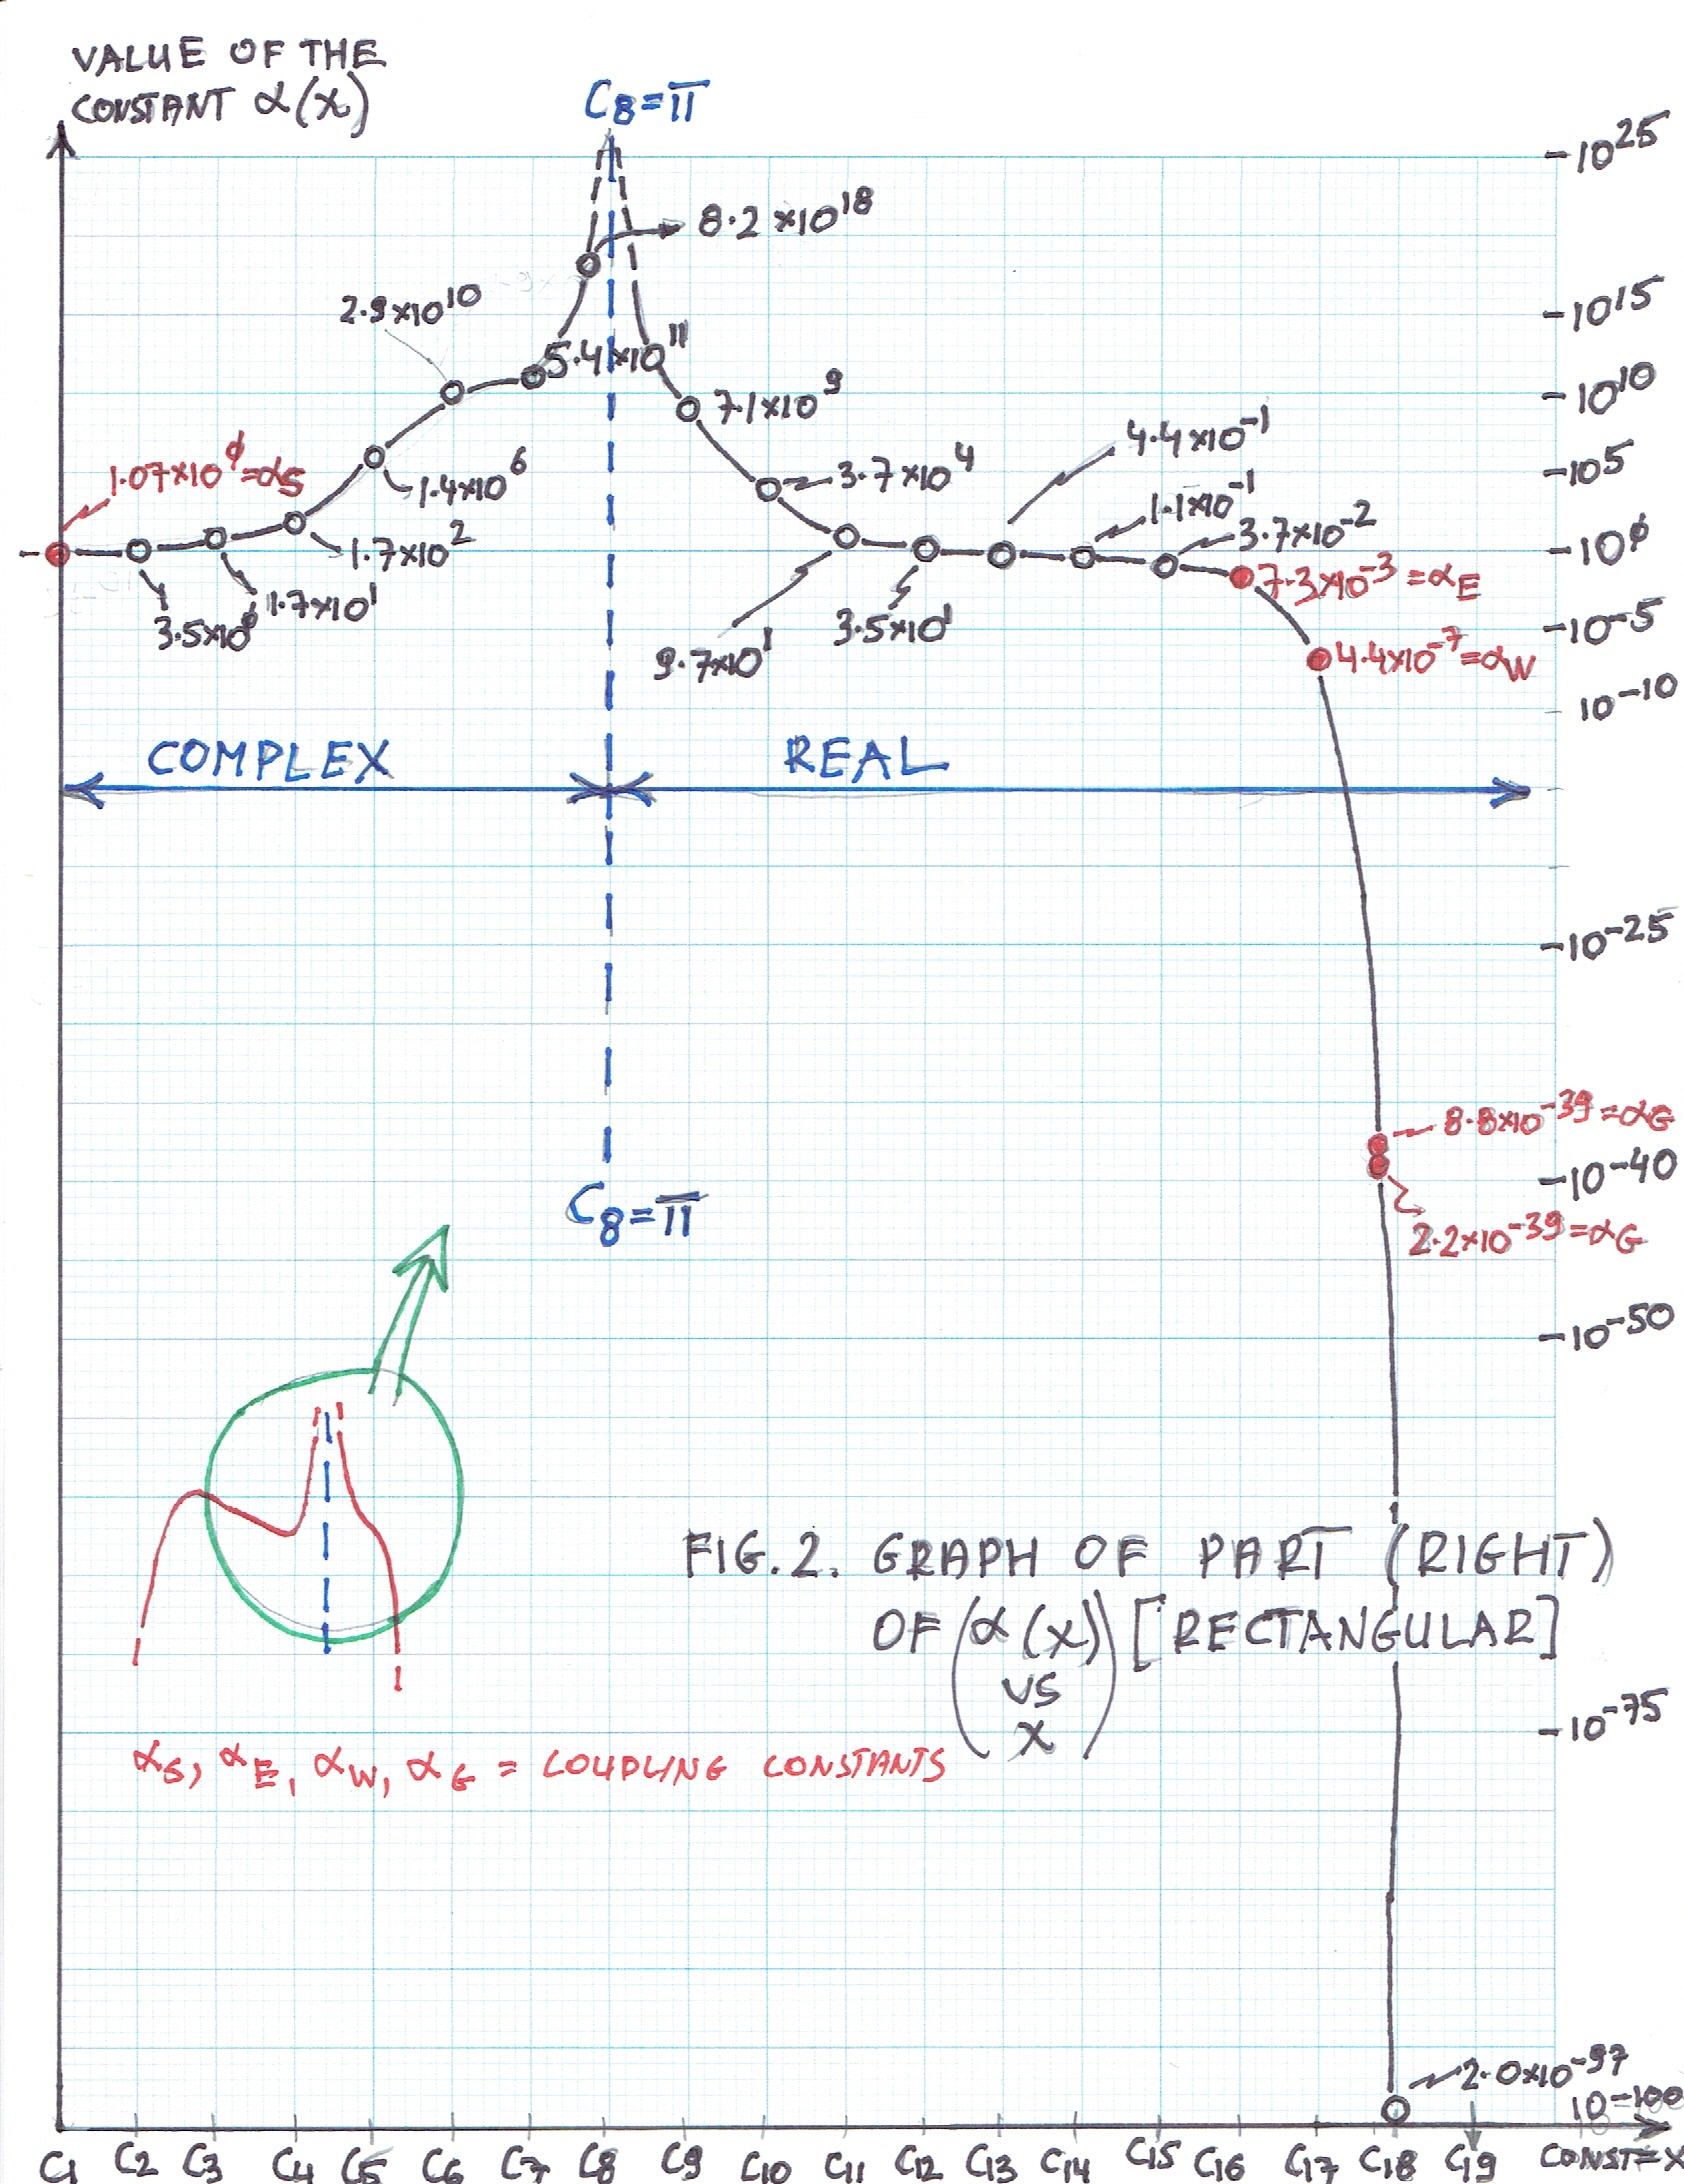 VALUE OF THE
CONSTANT α(x)
C8=π
-10^25
8.2×10^18
2.9×10^10
-10^15
5.4×10^11
-10^10
7.1×10^9
4.4×10^-1
1.07×10^φ=αS
1.4×10^6
3.7×10^4
-10^5
1.1×10^-1
1.7×10^2
3.7×10^-2
-10^φ
7.3×10^-3=αE
1.7×10^1
3.5×10^φ
9.7×10^1
3.5×10^1
-10^-5
4.4×10^-7=αW
10^-10
COMPLEX
REAL
-10^-25
8.8×10^-39=αG
-10^-40
C8=π
2.2×10^-39=αG
-10^-50
FIG.2. GRAPH OF PART (RIGHT)
OF (α(x) [RECTANGULAR]
VS
X)
-10^-75
αS, αE, αW, αG = COUPLING CONSTANTS
2.0×10^-97
10^-100
C1 C2 C3 C4 C5 C6 C7 C8 C9 C10 C11 C12 C13 C14 C15 C16 C17 C18 C19 CONST=X